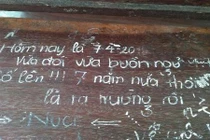 Hôm nay là 7-4-20
Vừa đói vừa buồn ngủ
cố lên!!! 7 năm nữa thôi
là ra trường rồi